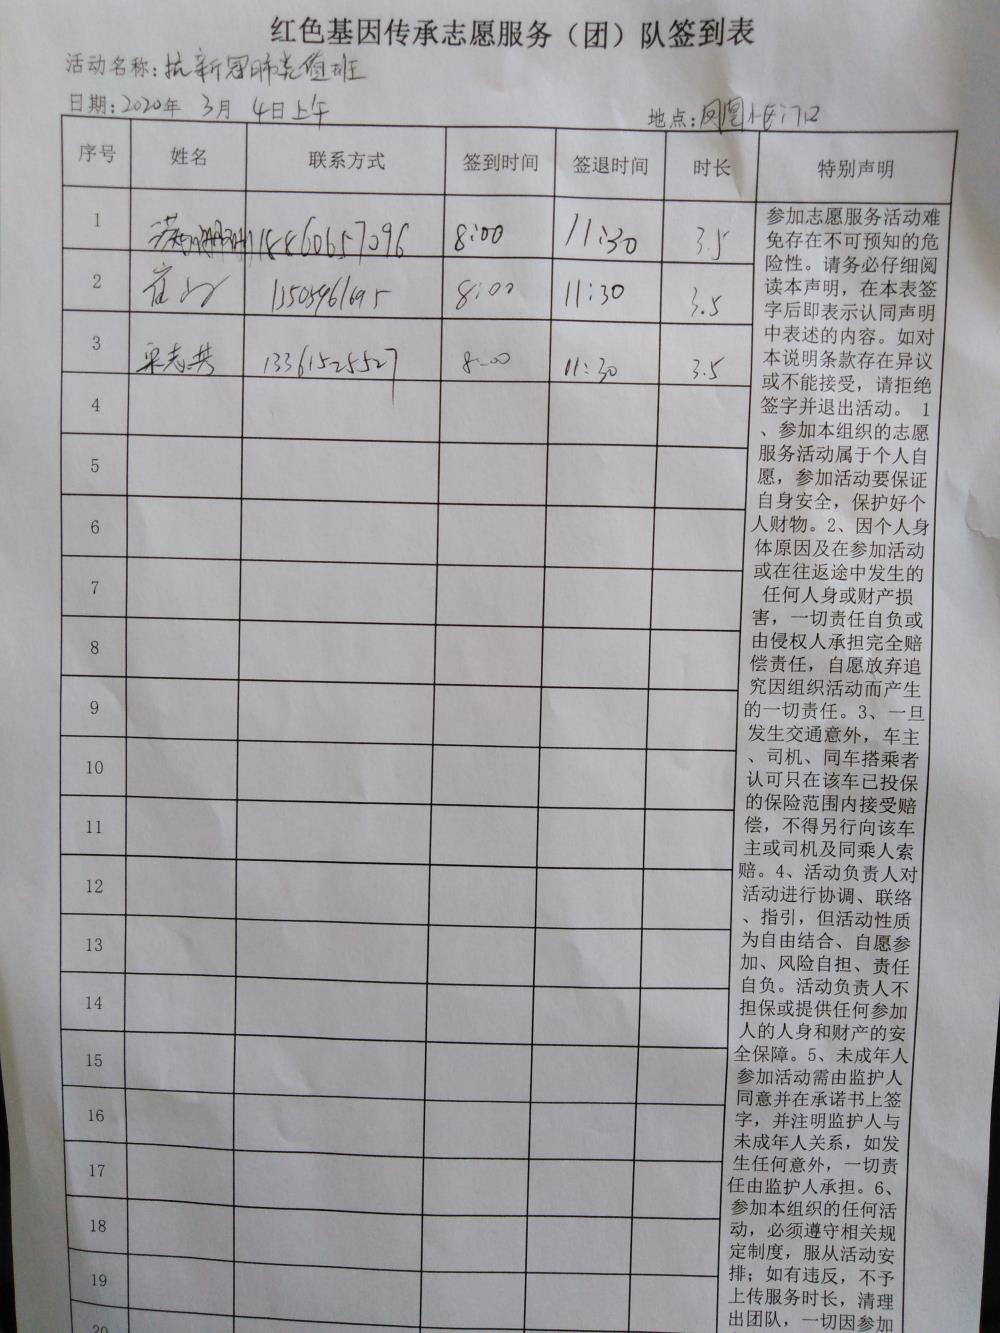 红色基因传承志愿服务（团）队签到表
活动名称：抗新冠肺炎值班
日期：2020年 3月 4日上午 地点：凤凰小区门口
序号 姓名 联系方式 签到时间 签退时间 时长 特别声明
1 18860657096 8:00 11:30 3.5
2 8:00 11:30 3.5
3 13361525527 8:00 11:30 3.5
4
5
6
7
8
9
10
11
12
13
14
15
16
17
18
19
20
参加志愿服务活动难
免存在不可预知的危
险性。请务必仔细阅
读本声明，在本表签
字后即表示认同声明
中表述的内容。如对
本说明条款存在异议
或不能接受，请拒绝
签字并退出活动。 1
、参加本组织的志愿
服务活动属于个人自
愿，参加活动要保证
自身安全，保护好个
人财物。2、因个人身
体原因及在参加活动
或在往返途中发生的
任何人身或财产损
害，一切责任自负或
由侵权人承担完全赔
偿责任，自愿放弃追
究因组织活动而产生
的一切责任。3、一旦
发生交通意外，车主
、司机、同车搭乘者
认可只在该车已投保
的保险范围内接受赔
偿，不得另行向该车
主或司机及同乘人索
赔。4、活动负责人对
活动进行协调、联络
、指引，但活动性质
为自由结合、自愿参
加、风险自担、责任
自负。活动负责人不
担保或提供任何参加
人的人身和财产的安
全保障。5、未成年人
参加活动需由监护人
同意并在承诺书上签
字，并注明监护人与
未成年人关系，如发
生任何意外，一切责
任由监护人承担。6、
参加本组织的任何活
动，必须遵守相关规
定制度，服从活动安
排；如有违反，不予
上传服务时长，清理
出团队，一切因参加